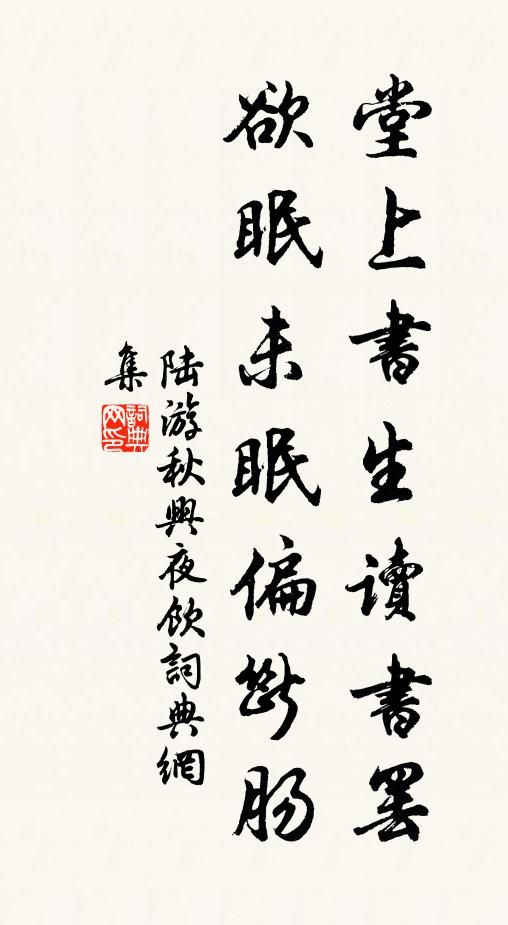 堂上書生讀書罷
欲眠未眠偏斷腸
陸游秋興夜飲詞典網
集
詞典网印